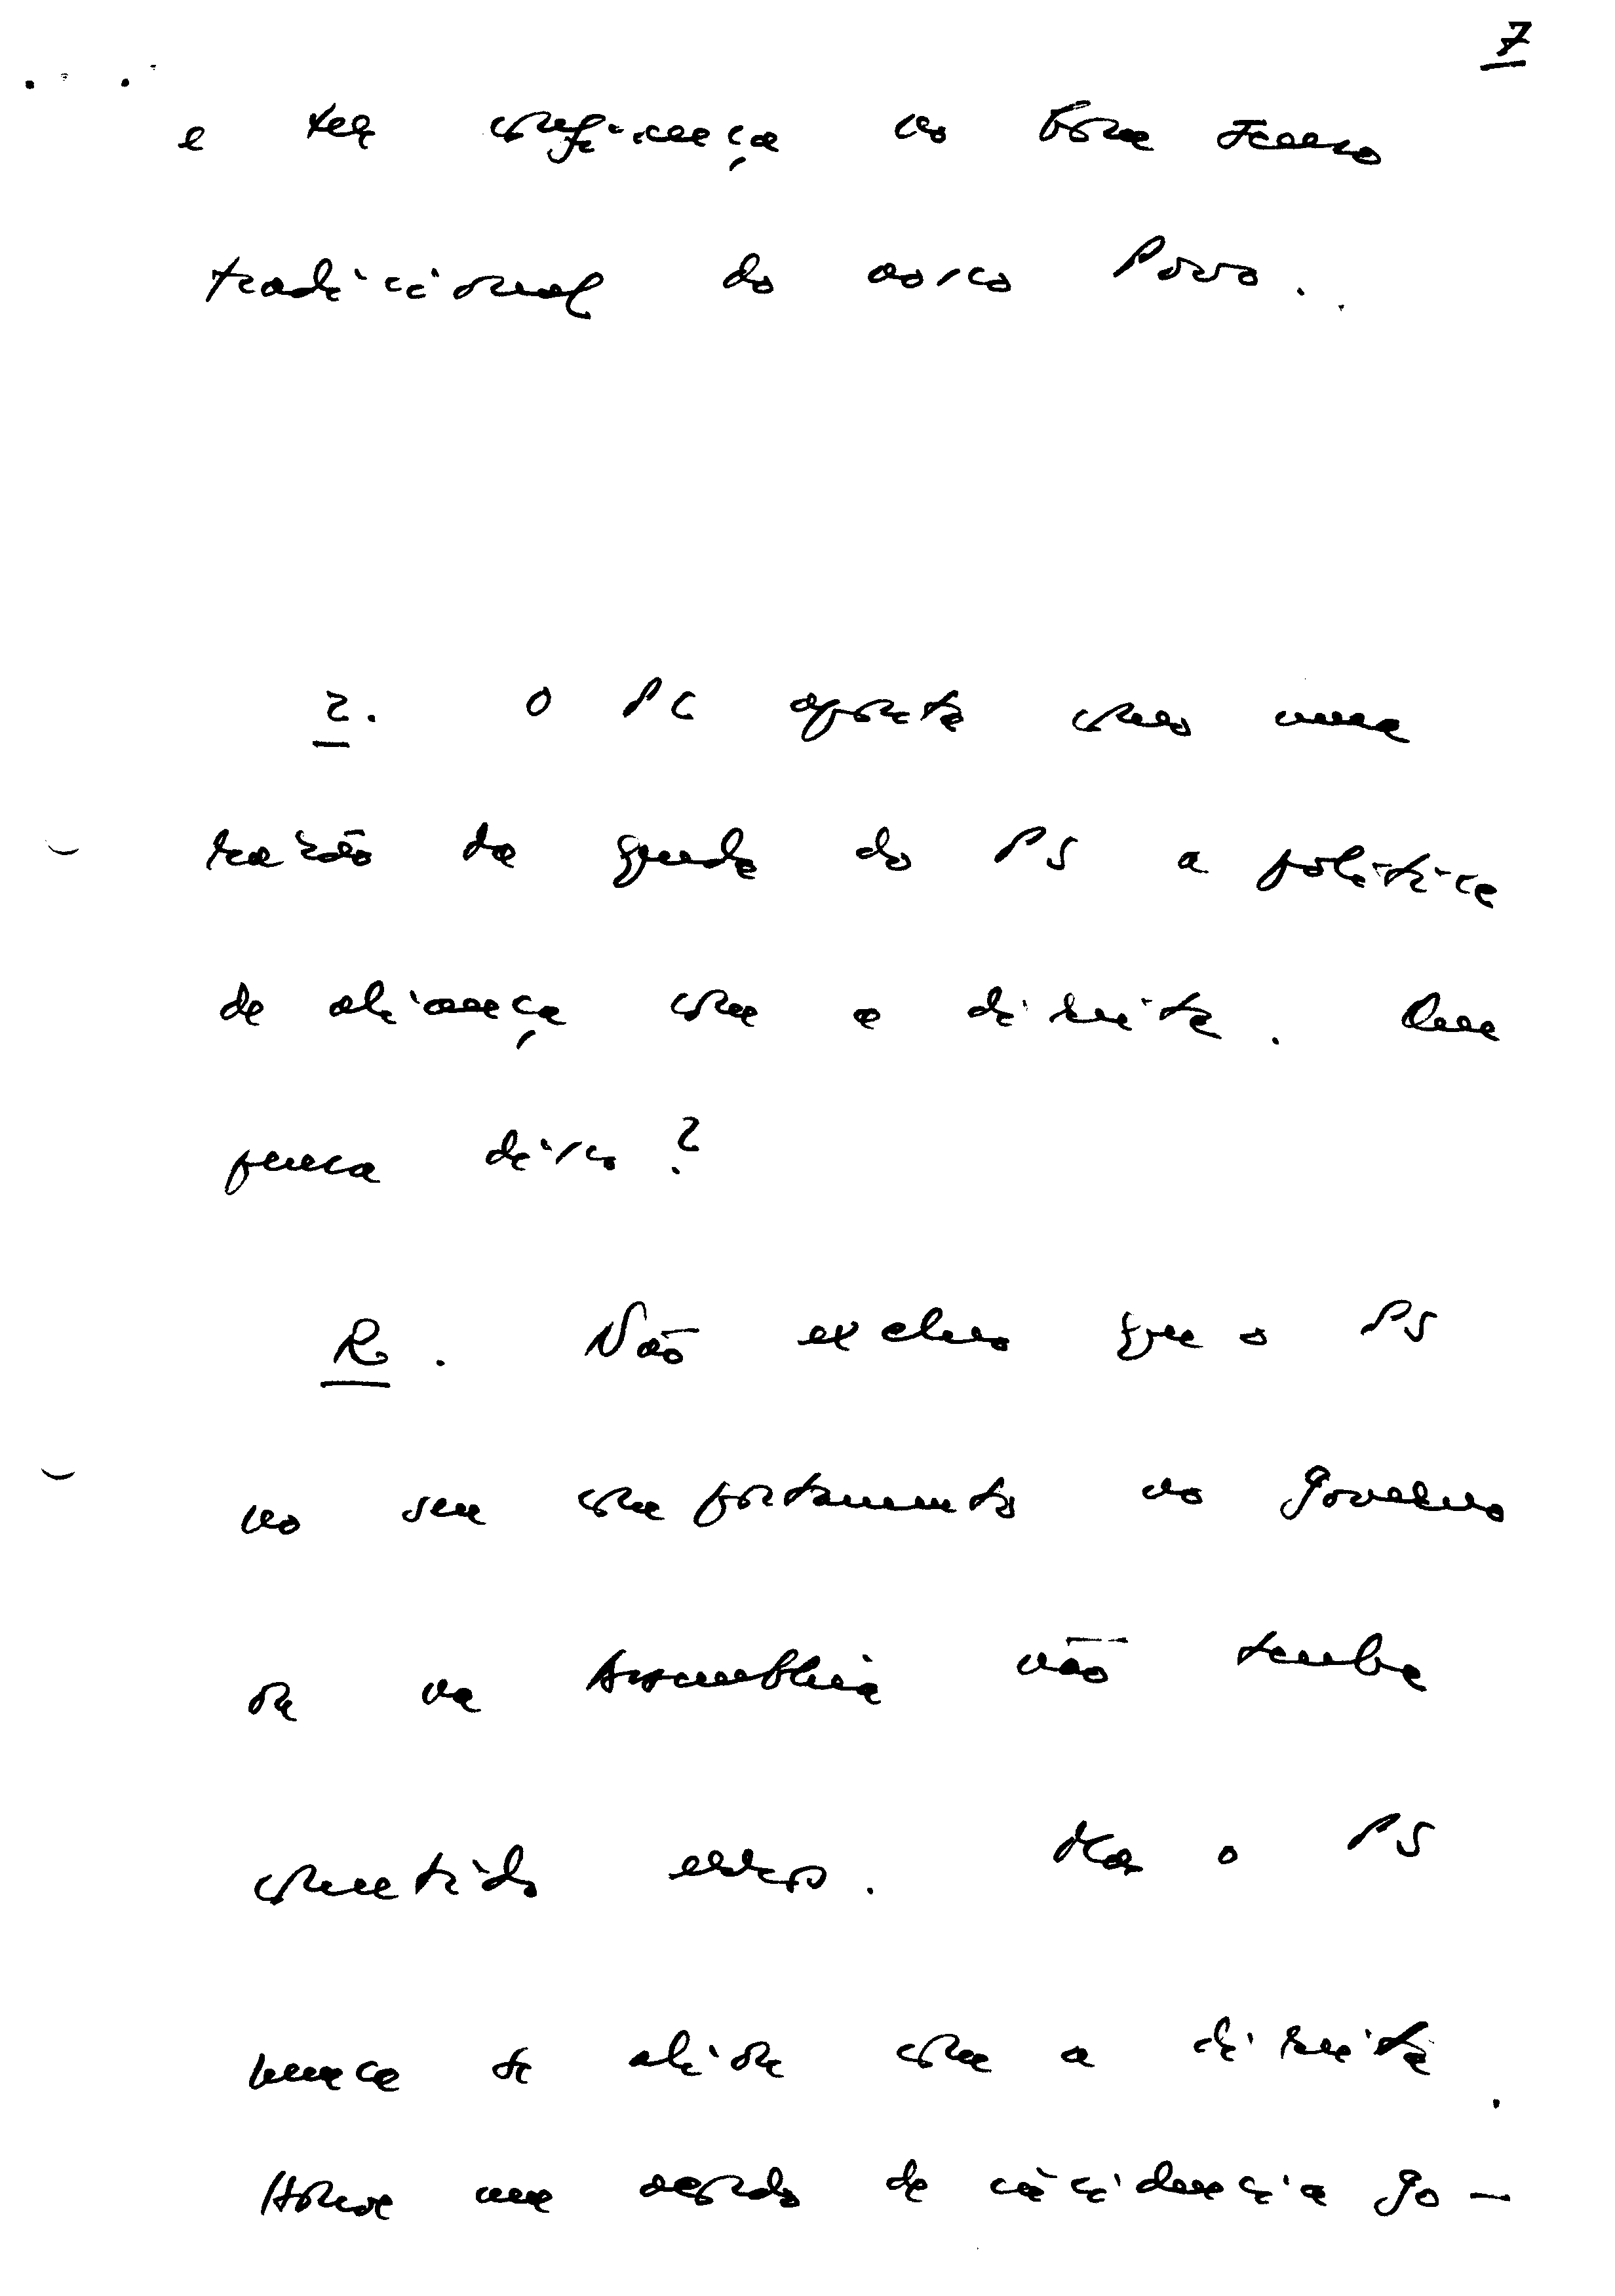 7
e ter confiança no bom senso
tradicional do nosso Povo.
2. O PC aponta como uma
razão da queda do PS a política
de aliança com a direita. Que
pensa disso?
R. Não excluo que o PS
no seu comportamento no Governo
ou na Assembleia não tenha
cometido erros. Mas o PS
nunca se aliou com a direita.
Houve um acordo de incidência go-